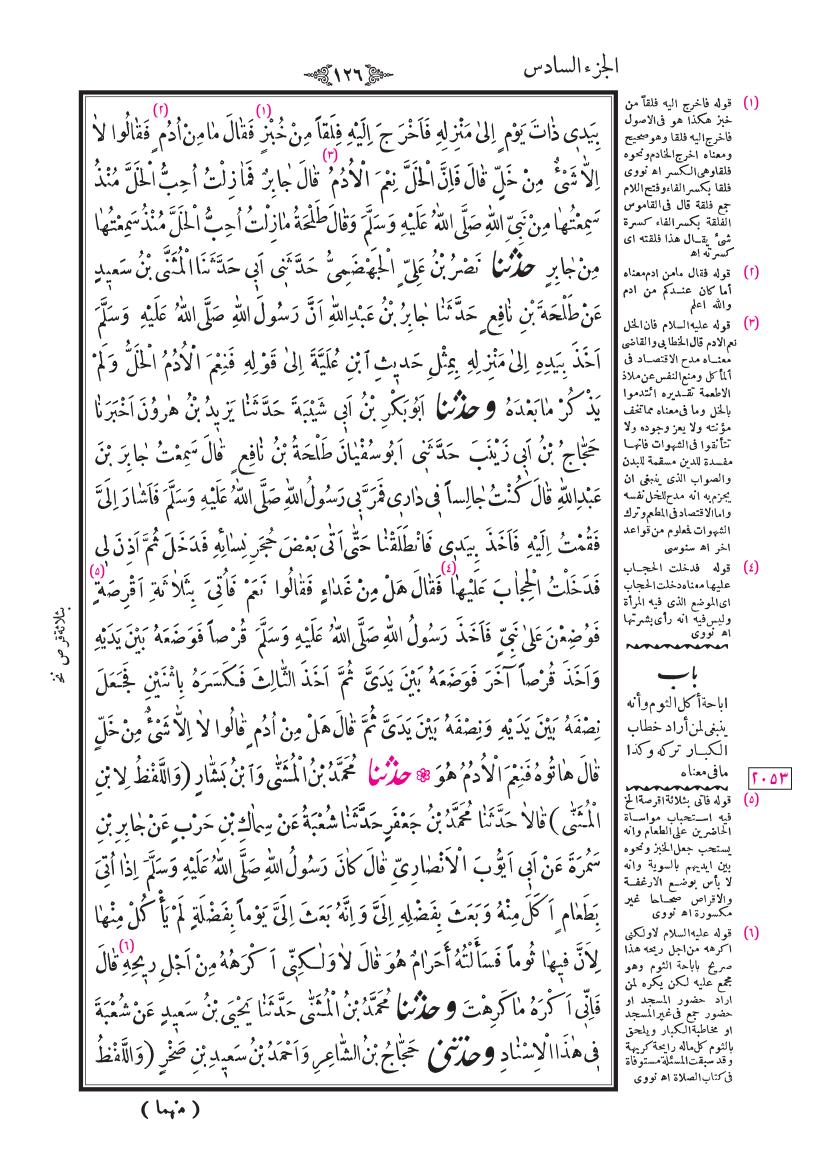 الجزء السادس
١٢٦
بِيَدِى ذَاتَ يَوْمٍ إِلَى مَنْزِلِهِ فَأَخْرَجَ إِلَيْهِ فِلَقاً مِنْ خُبْزٍ (١) فَقَالَ مَا مِنْ أُدُمٍ (٢) فَقَالُوا لَا
إِلَّا شَىْءٌ مِنْ خَلٍّ قَالَ فَإِنَّ الْخَلَّ نِعْمَ الْأُدُمُ (٣) قَالَ جَابِرٌ فَمَا زِلْتُ أُحِبُّ الْخَلَّ مُنْذُ
سَمِعْتُهَا مِنْ نَبِىِّ اللهِ صَلَّى اللهُ عَلَيْهِ وَسَلَّمَ وَقَالَ طَلْحَةُ مَا زِلْتُ أُحِبُّ الْخَلَّ مُنْذُ سَمِعْتُهَا
مِنْ جَابِرٍ حَدَّثَنَا نَصْرُ بْنُ عَلِىٍّ الْجَهْضَمِىُّ حَدَّثَنِى أَبِى حَدَّثَنَا الْمُثَنَّى بْنُ سَعِيدٍ
عَنْ طَلْحَةَ بْنِ نَافِعٍ حَدَّثَنَا جَابِرُ بْنُ عَبْدِ اللهِ أَنَّ رَسُولَ اللهِ صَلَّى اللهُ عَلَيْهِ وَسَلَّمَ
أَخَذَ بِيَدِهِ إِلَى مَنْزِلِهِ بِمِثْلِ حَدِيثِ ابْنِ عُلَيَّةَ إِلَى قَوْلِهِ فَنِعْمَ الْأُدُمُ الْخَلُّ وَلَمْ
يَذْكُرْ مَا بَعْدَهُ وحَدَّثَنَا أَبُو بَكْرِ بْنُ أَبِى شَيْبَةَ حَدَّثَنَا يَزِيدُ بْنُ هَرُونَ أَخْبَرَنَا
حَجَّاجُ بْنُ أَبِى زَيْنَبَ حَدَّثَنِى أَبُو سُفْيَانَ طَلْحَةُ بْنُ نَافِعٍ قَالَ سَمِعْتُ جَابِرَ بْنَ
عَبْدِ اللهِ قَالَ كُنْتُ جَالِساً فِى دَارِى فَمَرَّ بِى رَسُولُ اللهِ صَلَّى اللهُ عَلَيْهِ وَسَلَّمَ فَأَشَارَ إِلَىَّ
فَقُمْتُ إِلَيْهِ فَأَخَذَ بِيَدِى فَانْطَلَقْنَا حَتَّى أَتَى بَعْضَ حُجَرِ نِسَائِهِ فَدَخَلَ ثُمَّ أَذِنَ لِى
فَدَخَلْتُ الْحِجَابَ عَلَيْهَا (٤) فَقَالَ هَلْ مِنْ غَدَاءٍ فَقَالُوا نَعَمْ فَأُتِىَ بِثَلَاثَةِ أَقْرِصَةٍ (٥)
فَوُضِعْنَ عَلَى نَبِىٍّ فَأَخَذَ رَسُولُ اللهِ صَلَّى اللهُ عَلَيْهِ وَسَلَّمَ قُرْصاً فَوَضَعَهُ بَيْنَ يَدَيْهِ
وَأَخَذَ قُرْصاً آخَرَ فَوَضَعَهُ بَيْنَ يَدَىَّ ثُمَّ أَخَذَ الثَّالِثَ فَكَسَرَهُ بِاثْنَيْنِ فَجَعَلَ
نِصْفَهُ بَيْنَ يَدَيْهِ وَنِصْفَهُ بَيْنَ يَدَىَّ ثُمَّ قَالَ هَلْ مِنْ أُدُمٍ قَالُوا لَا إِلَّا شَىْءٌ مِنْ خَلٍّ
قَالَ هَاتُوهُ فَنِعْمَ الْأُدُمُ هُوَ ❁ حَدَّثَنَا مُحَمَّدُ بْنُ الْمُثَنَّى وَابْنُ بَشَّارٍ (وَاللَّفْظُ لِابْنِ
الْمُثَنَّى) قَالَا حَدَّثَنَا مُحَمَّدُ بْنُ جَعْفَرٍ حَدَّثَنَا شُعْبَةُ عَنْ سِمَاكِ بْنِ حَرْبٍ عَنْ جَابِرِ بْنِ
سَمُرَةَ عَنْ أَبِى أَيُّوبَ الْأَنْصَارِىِّ قَالَ كَانَ رَسُولُ اللهِ صَلَّى اللهُ عَلَيْهِ وَسَلَّمَ إِذَا أُتِىَ
بِطَعَامٍ أَكَلَ مِنْهُ وَبَعَثَ بِفَضْلِهِ إِلَىَّ وَإِنَّهُ بَعَثَ إِلَىَّ يَوْماً بِفَضْلَةٍ لَمْ يَأْكُلْ مِنْهَا
لِأَنَّ فِيهَا ثُوماً فَسَأَلْتُهُ أَحَرَامٌ هُوَ قَالَ لَا وَلَكِنِّى أَكْرَهُهُ مِنْ أَجْلِ رِيحِهِ (٦) قَالَ
فَإِنِّى أَكْرَهُ مَا كَرِهْتَ وحَدَّثَنَا مُحَمَّدُ بْنُ الْمُثَنَّى حَدَّثَنَا يَحْيَى بْنُ سَعِيدٍ عَنْ شُعْبَةَ
فِى هَذَا الْإِسْنَادِ وحَدَّثَنِى حَجَّاجُ بْنُ الشَّاعِرِ وَأَحْمَدُ بْنُ سَعِيدِ بْنِ صَخْرٍ (وَاللَّفْظُ
( منهما )
(١) قوله فاخرج اليه فلقاً من
خبز هكذا هو فى الاصول
فاخرج اليه فلقا وهو صحيح
ومعناه اخرج الخادم ونحوه
فلقا وهى الكسر اه نووى
فلقا بكسر الفاء وفتح اللام
جمع فلقة قال فى القاموس
الفلقة بكسر الفاء كسرة
شئ يقال هذا فلقته اى
كسرته اه
(٢) قوله فقال مامن ادم معناه
أما كان عندكم من ادم
والله اعلم
(٣) قوله عليه السلام فان الخل
نعم الادم قال الخطابى والقاضى
معناه مدح الاقتصاد فى
المأكل ومنع النفس عن ملاذ
الاطعمة تقديره ائتدموا
بالخل وما فى معناه مما تخف
مؤنته ولا يعز وجوده ولا
تتأنقوا فى الشهوات فانها
مفسدة للدين مسقمة للبدن
والصواب الذى ينبغى ان
يجزم به انه مدح للخل نفسه
واما الاقتصاد فى المطعم وترك
الشهوات فمعلوم من قواعد
اخر اه سنوسى
(٤) قوله فدخلت الحجاب
عليها معناه دخلت الحجاب
اى الموضع الذى فيه المرأة
وليس فيه انه رأى بشرتها
اه نووى
باب
اباحة أكل الثوم وأنه
ينبغى لمن أراد خطاب
الكبار تركه وكذا
ما فى معناه
٢٠٥٣
(٥) قوله فاتى بثلاثة اقرصة الخ
فيه استحباب مواساة
الحاضرين على الطعام وانه
يستحب جعل الخبز ونحوه
بين ايديهم بالسوية وانه
لا بأس بوضع الارغفة
والاقراص صحاحا غير
مكسورة اه نووى
(٦) قوله عليه السلام لا ولكنى
اكرهه من اجل ريحه هذا
صريح باباحة الثوم وهو
مجمع عليه لكن يكره لمن
اراد حضور المسجد او
حضور جمع فى غير المسجد
او مخاطبة الكبار ويلحق
بالثوم كل ماله رايحة كريهة
وقد سبقت المسئلة مستوفاة
فى كتاب الصلاة اه نووى
بثلاثة قرص نخ